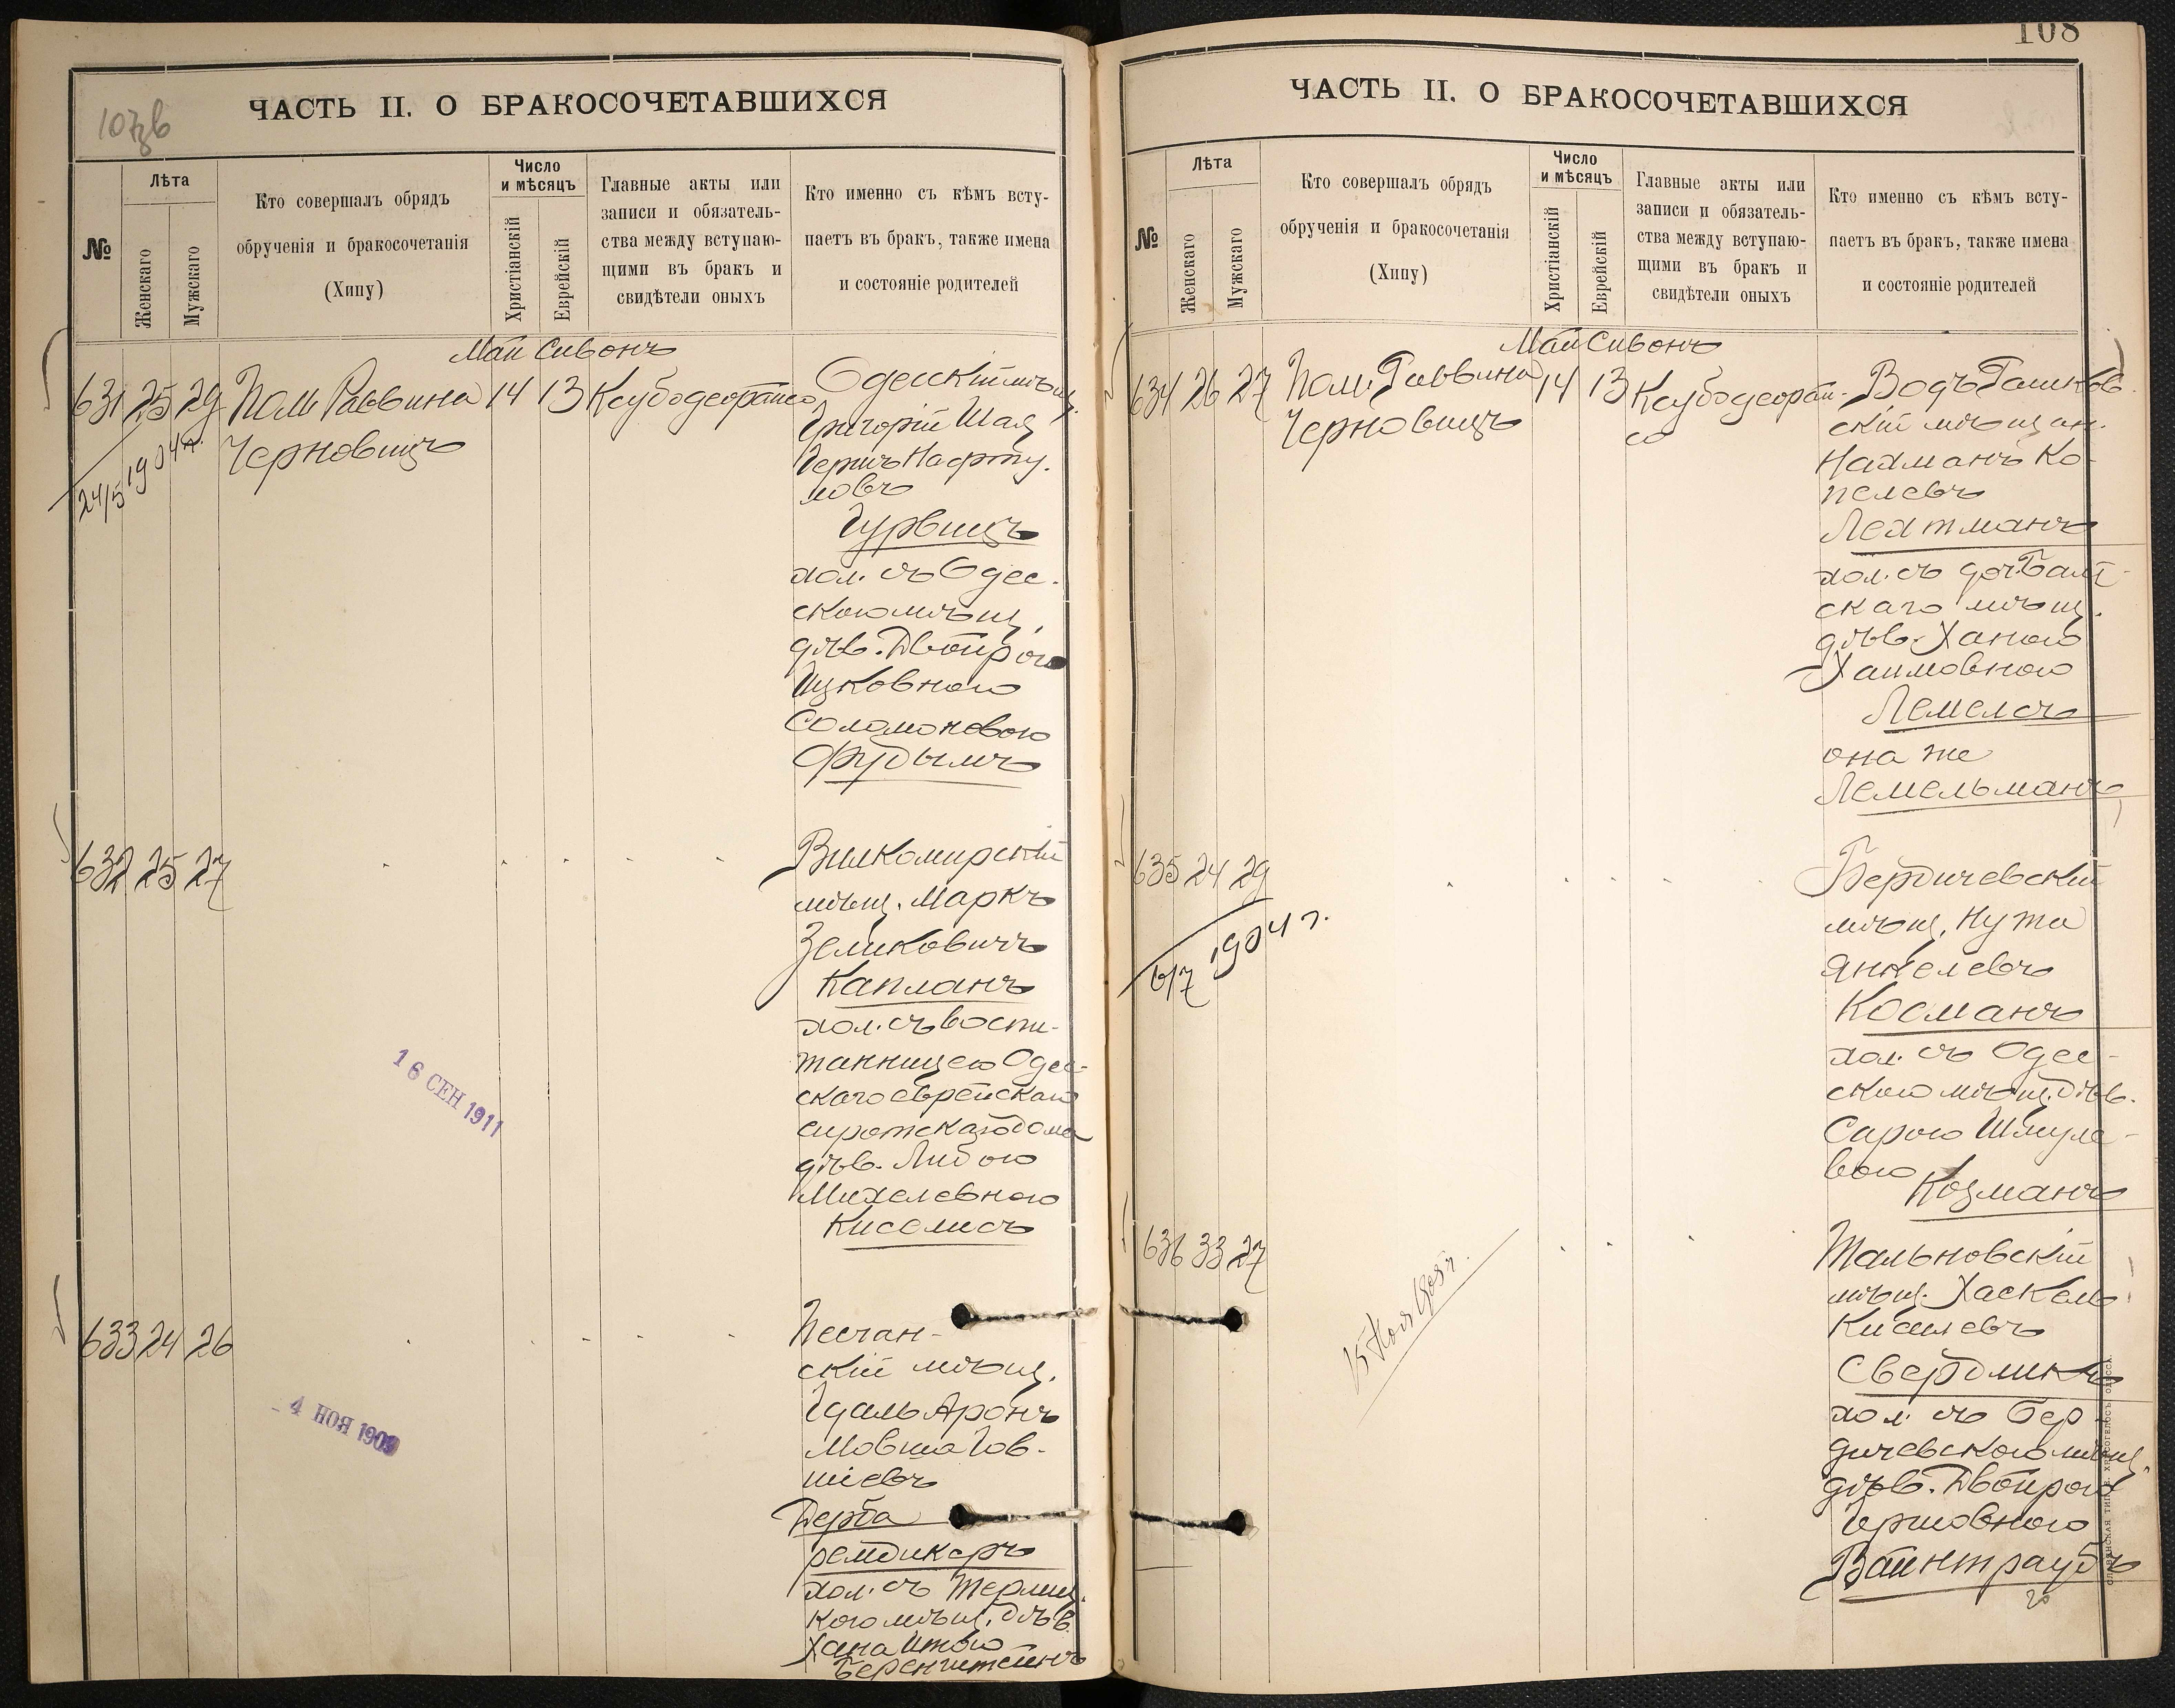 107зв
ЧАСТЬ II. О БРАКОСОЧЕТАВШИХСЯ
№
Лѣта
Женскаго
Мужскаго
Кто совершалъ обрядъ
обрученія и бракосочетанія
(Хипу)
Число
и мѣсяцъ
Христіанскій
Еврейскій
Главные акты или
записи и обязатель-
ства между вступаю-
щими въ бракъ и
свидѣтели оныхъ
Кто именно съ кѣмъ всту-
паетъ въ бракъ, также имена
и состояніе родителей
Май Сивонъ
631 25 29 Пом. Раввина 14 13
Черновицъ
24/5 1904 г.
Одесскій мѣщ.
Григорій Шая
Гершъ Нафту-
ловъ
Гурвицъ
хол. съ Одес-
скою мѣщ.
дѣв. Двойрою
Ицковною
Соломоновою
Фудымъ
632 25 27
Вилкомирскій
мѣщ. Маркъ
Зеликовичъ
Капланъ
хол. съ воспи-
танницею Одес-
скаго еврейскаго
сиротскаго дома
дѣв. Либою
Михелевною
Киселисъ
16 СЕН 1911
633 24 26
Песчан-
скій мѣщ.
Идаль Аронъ
Мовша Iов-
шiевъ
Дерба
ремдикеръ
хол. съ Терлиц.
кою мѣщ. дѣв.
Хана Итою
Беренштейнъ
4 НОЯ
108
ЧАСТЬ II. О БРАКОСОЧЕТАВШИХСЯ
№
Лѣта
Женскаго
Мужскаго
Кто совершалъ обрядъ
обрученія и бракосочетанія
(Хипу)
Число
и мѣсяцъ
Христіанскій
Еврейскій
Главные акты или
записи и обязатель-
ства между вступаю-
щими въ бракъ и
свидѣтели оныхъ
Кто именно съ кѣмъ всту-
паетъ въ бракъ, также имена
и состояніе родителей
Май Сивонъ
634 26 27 Пом. Раввина 14 13
Черновицъ
скій мѣщан.
Нахманъ Ко-
пелевъ
Лехтманъ
хол. съ доч. Балт-
скаго мѣщ.
дѣв. Ханою
Хаимовною
Лемелсъ
она же
Лемельманъ
635 24 29
6/7 1904 г.
Бердичевскій
мѣщ. Нута
Янкелевъ
Косманъ
хол. съ Одес-
скою мѣщ. дѣв.
Сарою Шмуле-
вою
Козманъ
636 33 27
15 Ноя 1905 г.
Тальновскій
мѣщ. Хаскель
Киселевъ
Свердликъ
хол. съ Бер-
дичевскою мѣщ.
дѣв. Двойрою
Гершовною
Вайнтраубъ
СЛАВЯНСКАЯ ТИП. Н. ХРИСОГЕЛОСЪ ОДЕССА.